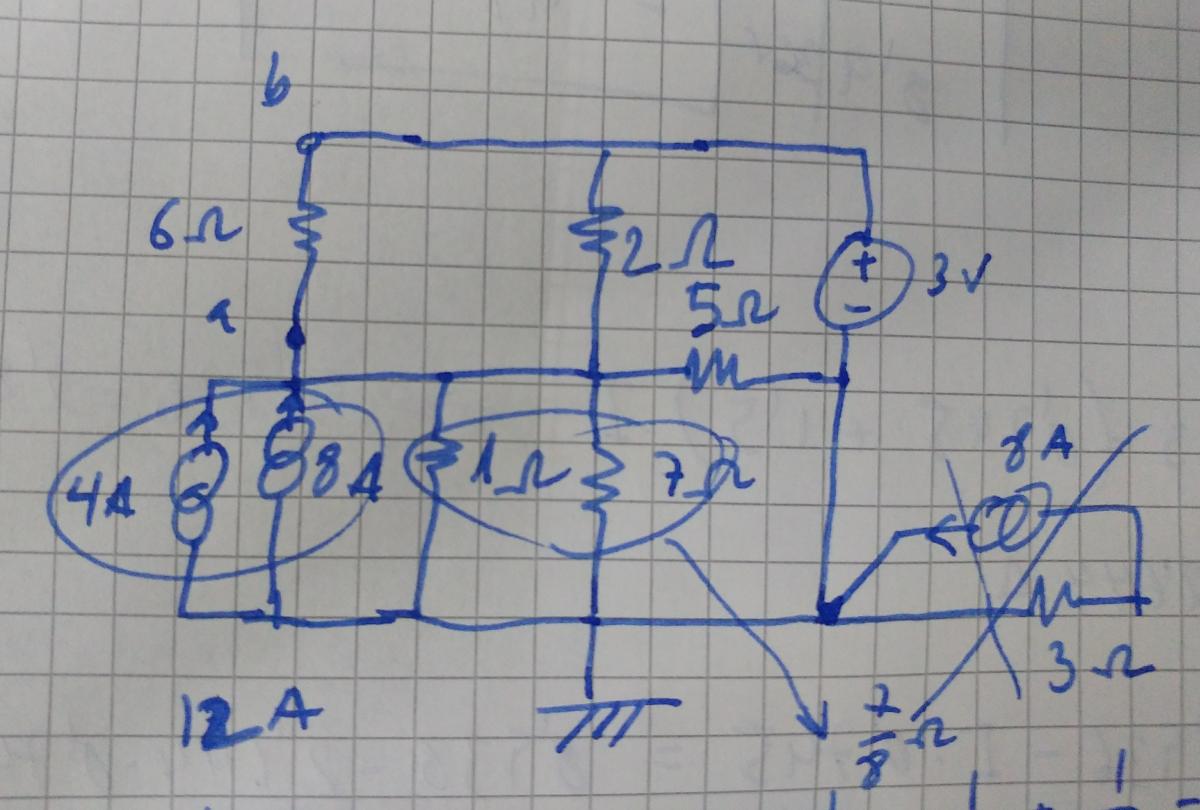 b
6Ω
2Ω
+
-
3V
5Ω
a
4A
8A
1Ω
7Ω
8A
3Ω
12A
7/8 Ω